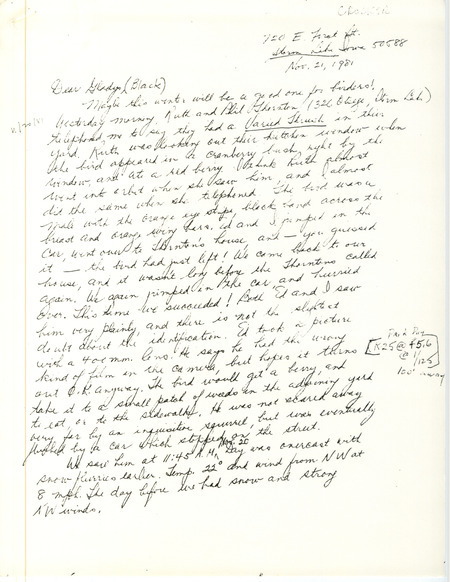 720 E. First St.
Storm Lake Iowa 50588
Nov. 21, 1981
Dear Gladys (Black)
Maybe this winter will be a good one for birders!
Yesterday morning, Ruth and Phil Thornton (1326 , Storm Lake)
telephoned me to say they had a Varied Thrush in their
yard. Ruth was looking out their kitchen window when
the bird appeared in a cranberry bush, right by the
window, and ate a red berry. I think Ruth almost
went into orbit when she saw him, and I almost
did the same when she telephoned. The bird was a
male with the orange eye stripe, black band across the
breast and orange wing bars. Ed and I jumped in the
car, went over to Thornton's house, and — you guessed
it — the bird had just left! We came back to our
house, and it wasn't long before the Thorntons called
again. We again jumped in the car and hurried
over. This time we succeeded! Both Ed and I saw
him very plainly, and there is not the slightest
doubt about the identification. Ed took a picture
with a 400 mm. lens. He says he had the wrong
kind of film in the camera, but hopes it turns
out O.K. anyway. The bird would get a berry, and
take it to a small patch of weeds in the adjoining yard
to eat, or to the sidewalk. He was not scared away
very far by an inquisitive squirrel, but was eventually
flushed by a car which stopped on the street.
We saw him at 11:45 A.M., Nov. 20 Day was overcast with
snow flurries earlier. Temp. 22° and wind from NW at
8 mph. The day before we had snow and strong
NW winds.
K25 @ 5.6
@ 1/125
100' away